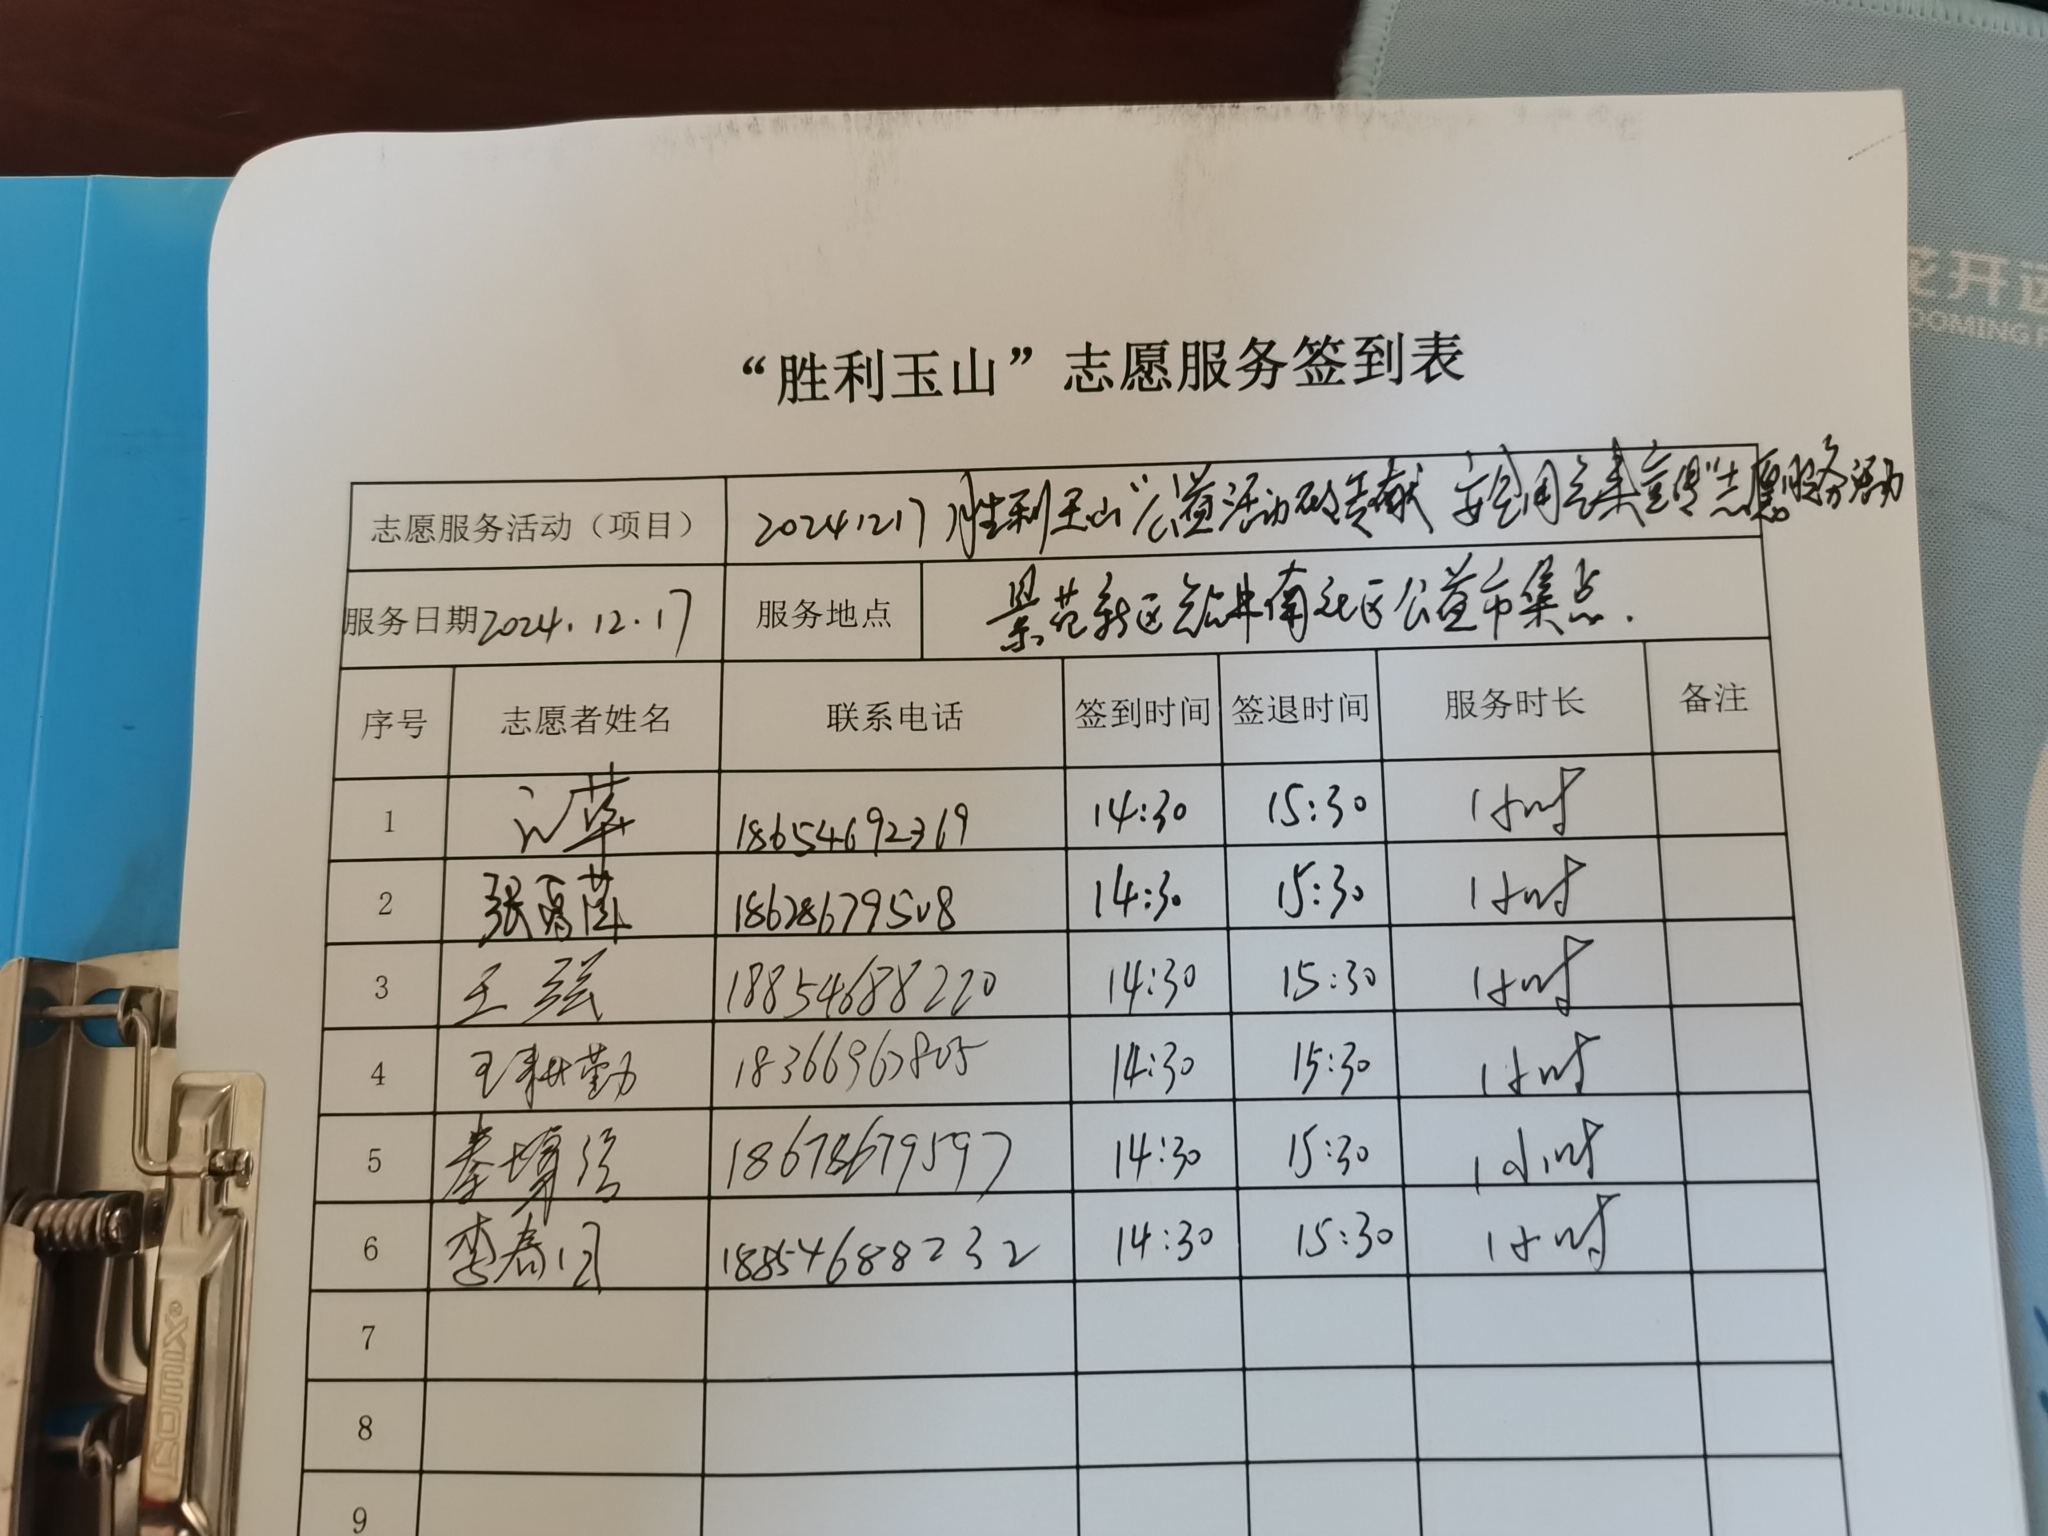 花开远
OOMING
“胜利玉山”志愿服务签到表
志愿服务活动（项目） 20241217胜利玉山“公益活动 贡献 安全用气集宣传”志愿服务活动
服务日期2024.12.17 服务地点 景苑新区钻井南社区公益市集点.
序号 志愿者姓名 联系电话 签到时间 签退时间 服务时长 备注
1 18654692369 14:30 15:30 1小时
2 张 18678679508 14:30 15:30 1小时
3 王强 18854688220 14:30 15:30 1小时
4 王耕勤 14:30 15:30 1小时
5 秦 18678679597 14:30 15:30 1小时
6 李春 18854688232 14:30 15:30 1小时
7
8
9